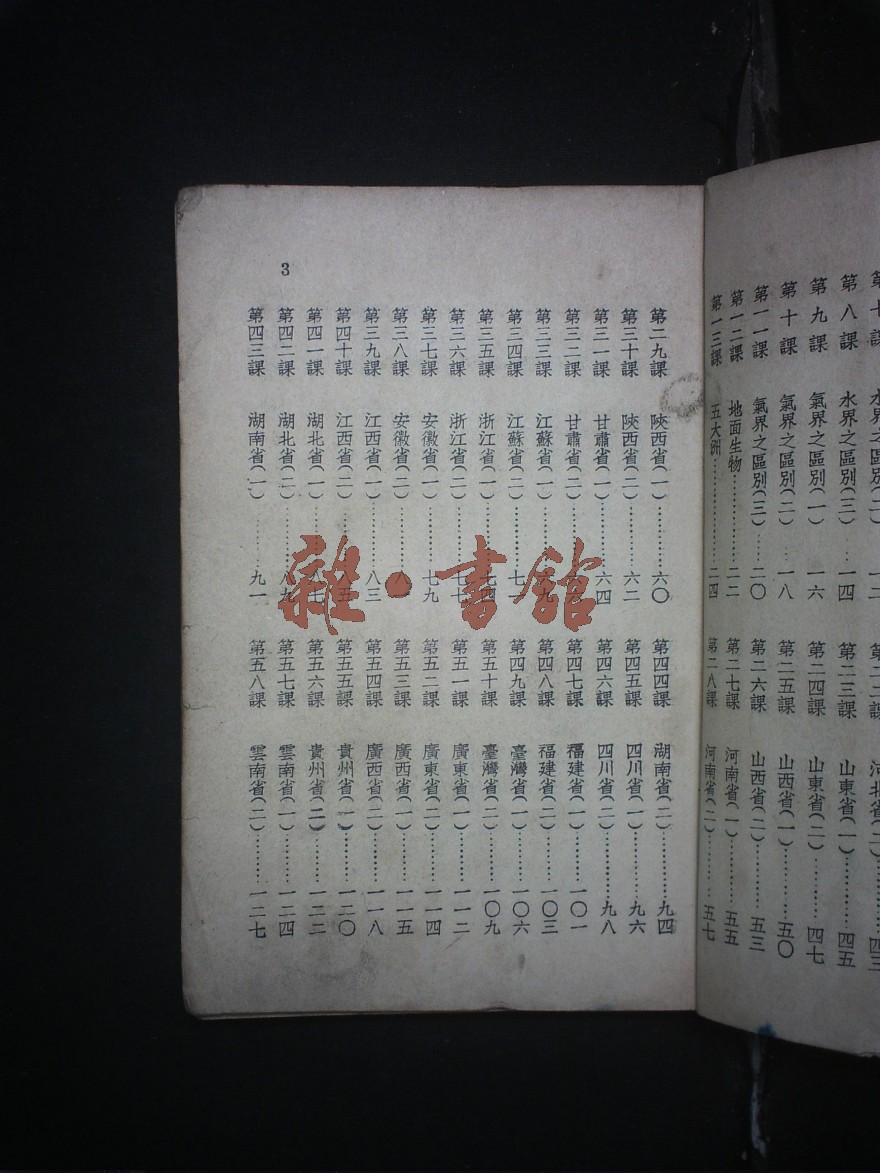 水界之區別(二) 一二
第八課 水界之區別(三) …一四
第九課 氣界之區別(一) …一六
第十課 氣界之區別(二) …一八
第一一課 氣界之區別(三) ……二〇
第一二課 地面生物…………二二
第一三課 五大洲…………二四
河北省(二) 四三
第二三課 山東省(一)…………四五
第二四課 山東省(二)…………四七
第二五課 山西省(一)…………五〇
第二六課 山西省(二)…………五三
第二七課 河南省(一)…………五五
第二八課 河南省(二)…………五七
3
第二九課 陝西省(一)…………六〇
第三十課 陝西省(二)…………六二
第三一課 甘肅省(一)…………六四
第三二課 甘肅省(二)…………
第三三課 江蘇省(一)…………六九
第三四課 江蘇省(二)…………七一
第三五課 浙江省(一)…………七四
第三六課 浙江省(二)…………七七
第三七課 安徽省(一)…………七九
第三八課 安徽省(二)…………
第三九課 江西省(一)…………八三
第四十課 江西省(二)…………
第四一課 湖北省(一)…………八七
第四二課 湖北省(二)…………八九
第四三課 湖南省(一)…………九一
第四四課 湖南省(二)…………九四
第四五課 四川省(一)…………九六
第四六課 四川省(二)…………九八
第四七課 福建省(一)…………一〇一
第四八課 福建省(二)…………一〇三
第四九課 臺灣省(一)…………一〇六
第五十課 臺灣省(二)…………一〇九
第五一課 廣東省(一)…………一一二
第五二課 廣東省(二)…………一一四
第五三課 廣西省(一)…………一一五
第五四課 廣西省(二)…………一一八
第五五課 貴州省(一)…………一二〇
第五六課 貴州省(二)…………一二二
第五七課 雲南省(一)…………一二四
第五八課 雲南省(二)…………一二七
雜·書館